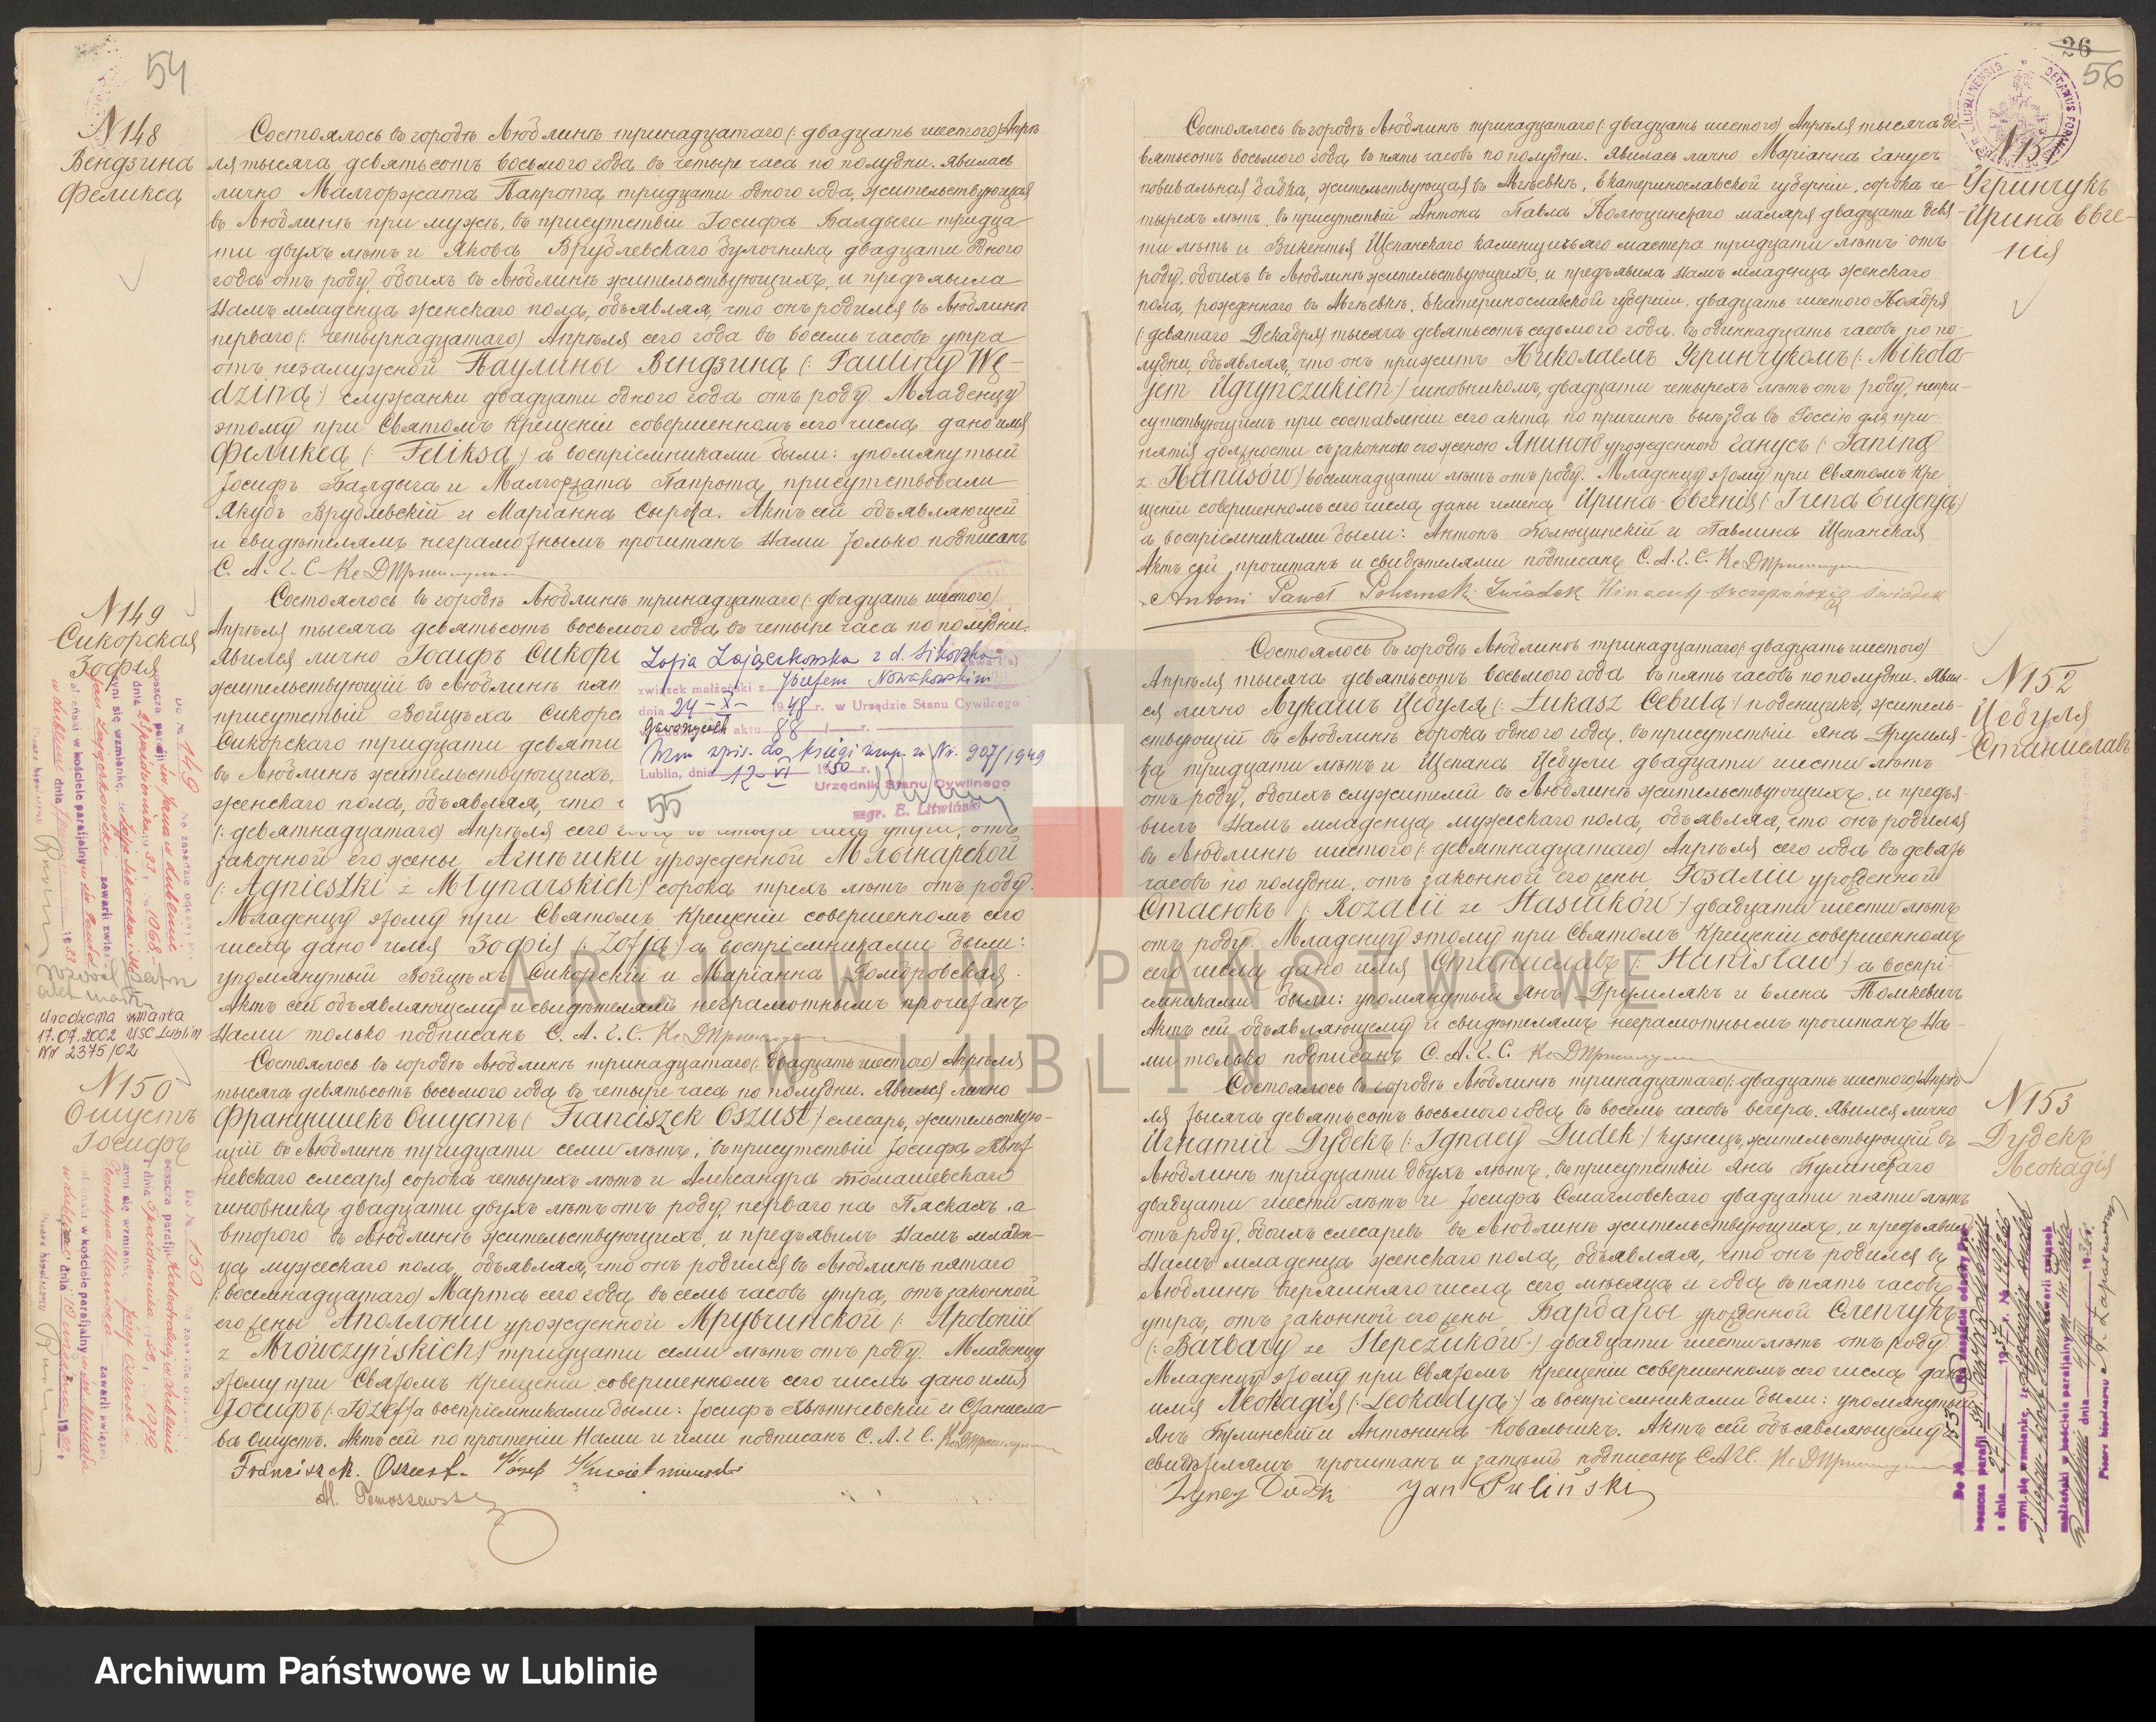 54
N 148
Вендзина
Феликса
Состоялось въ городѣ Люблинѣ тринадцатаго (: двадцать шестого) Апрѣ-
ля тысяча девятьсотъ восьмого года въ четыре часа по полудни. Явилась
лично Малгоржата Папрота, тридцати одного года, жительствующая
въ Люблинѣ при мужѣ, въ присутствіи Іосифа Балдыги тридца-
ти двухъ лѣтъ и Якова Врублевскаго булочника двадцати одного
года отъ роду, обоихъ въ Люблинѣ жительствующихъ, и предъявила
Намъ младенца женскаго пола, объявляя, что онъ родился въ Люблинѣ
перваго (: четырнадцатаго) Апрѣля сего года въ восемь часовъ утра
отъ незамужной Паулины Вендзина (: Pauliny Wę-
dzina :) служанки двадцати одного года отъ роду. Младенцу
этому при Святомъ Крещеніи совершенномъ сего числа дано имя
Феликса (: Feliksa :) а воспріемниками были: упомянутый
Іосифъ Балдыга и Малгоржата Папрота, присутствовали
Якубъ Врублевскій и Маріанна Сырота. Актъ сей объявляющей
и свидѣтелямъ неграмотнымъ прочитанъ Нами только подписанъ
С. А. Г. С.
N 149
Сикорская
Зофія
Состоялось въ городѣ Люблинѣ тринадцатаго (: двадцать шестого)
Апрѣля тысяча девятьсотъ восьмого года въ четыре часа по полудни.
Явился лично Іосифъ Сикор
жительствующій въ Люблинѣ пят
присутствіи Войцѣха Сикорс
Сикорскаго тридцати девяти
въ Люблинѣ жительствующихъ,
женскаго пола, объявляя, что
(: девятнадцатаго) Апрѣля сего
законной его жены Агнѣшки урожденной Млынарской
(: Agnieszki z Młynarskich :) сорока трехъ лѣтъ отъ роду.
Младенцу этому при Святомъ Крещеніи совершенномъ сего
числа дано имя Зофія (: Zofja :) а воспріемниками были:
упомянутый Войцѣхъ Сикорскій и Маріанна Домбровская.
Актъ сей объявляющему и свидѣтелямъ неграмотнымъ прочитанъ
Нами только подписанъ С. А. Г. С.
Zofia Zajączkowska z d. Sikorska
związek małżeński z Józefem Nowakowskim
dnia 24-X- 1948 r. w Urzędzie Stanu Cywilnego
aktu 88
ksiegi 907/1949
Lublin, dnia 12-VI 1950 r.
Urzędnik Stanu Cywilnego
mgr. E. Litwiński
55
17.07.2002 USC Lublin
Nr 2375/02
N 150
Ошустъ
Іосифъ
Состоялось въ городѣ Люблинѣ тринадцатаго (: двадцать шестого) Апрѣля
тысяча девятьсотъ восьмого года въ четыре часа по полудни. Явился лично
Францишекъ Ошустъ (: Franciszek Oszust) слесарь, жительствую-
щій въ Люблинѣ тридцати семи лѣтъ, въ присутствіи Іосифа Квѣт-
невскаго слесаря сорока четырехъ лѣтъ и Александра Томашевскаго
чиновника двадцати двухъ лѣтъ отъ роду, перваго на Пяскахъ, а
второго въ Люблинѣ жительствующихъ, и предъявилъ Намъ младен-
ца мужескаго пола, объявляя, что онъ родился въ Люблинѣ пятаго
(: восемнадцатаго) Марта сего года въ семь часовъ утра, отъ законной
его жены Аполлоніи урожденной Мрувчинской (: Apolonii
z Mrówczyńskich) тридцати семи лѣтъ отъ роду. Младенцу
этому при Святомъ Крещеніи совершенномъ сего числа дано имя
Іосифъ (: Józef) а воспріемниками были: Іосифъ Квѣтневскій и Станисла-
ва Ошустъ. Актъ сей по прочтеніи Нами и ими подписанъ С. А. Г. С.
Franciszek Oszust. Józef Kwietniewski
Al. Tomaszewski
26
56
N 151
Угринчукъ
Ирина Евге-
нія
Состоялось въ городѣ Люблинѣ тринадцатаго (: двадцать шестого) Апрѣля тысяча де-
вятьсотъ восьмого года въ пять часовъ по полудни. Явилась лично Маріанна Ганусъ
повивальная бабка, жительствующая въ Екатеринославской губерніи, сорока че-
тырехъ лѣтъ, въ присутствіи Антона Павла маляра двадцати девя-
ти лѣтъ и Викентья Щепанскаго мастера тридцати лѣтъ отъ
роду, обоихъ въ Люблинѣ жительствующихъ, и предъявила Намъ младенца женскаго
пола, рожденнаго въ Екатеринославской губерніи, двадцать шестого Ноября
(: девятаго Декабря) тысяча девятьсотъ седьмого года, въ одиннадцать часовъ по по-
лудни, объявляя, что онъ прижитъ Николаемъ Угринчукомъ (: Mikoła-
jem Ugrynczukiem) чиновникомъ, двадцати четырехъ лѣтъ отъ роду, непри-
сутствующимъ при составленіи сего акта по причинѣ выѣзда въ Россію для при-
нятія должности съ законною его женою Яниною урожденною Ганусъ (: Janina
z Hanusów) восемнадцати лѣтъ отъ роду. Младенцу этому при Святомъ Кре-
щеніи совершенномъ сего числа даны имена Ирина-Евгенія (: Irena Eugenja)
а воспріемниками были: Антонъ и Павлина Щепанская
Актъ сей прочитанъ и свидѣтелями подписанъ С. А. Г. С.
Antoni Paweł świadek Wincenty Szczepański świadek
N 152
Цебуля
Станиславъ
Состоялось въ городѣ Люблинѣ тринадцатаго (: двадцать шестого)
Апрѣля тысяча девятьсотъ восьмого года въ пять часовъ по полудни. Явил-
ся лично Лукашъ Цебуля (: Łukasz Cebula :) поденщикъ, житель-
ствующій въ Люблинѣ сорока одного года, въ присутствіи Яна Грумля-
ка тридцати лѣтъ и Щепана Цебули двадцати шести лѣтъ
отъ роду, обоихъ служителей въ Люблинѣ жительствующихъ, и предъя-
вилъ Намъ младенца мужескаго пола, объявляя, что онъ родился
въ Люблинѣ шестого (: девятнадцатаго) Апрѣля сего года въ девять
часовъ по полудни, отъ законной его жены Розаліи урожденной
Стасюкъ (: Rozalii ze Stasiuków :) двадцати шести лѣтъ
отъ роду. Младенцу этому при Святомъ Крещеніи совершенномъ
сего числа дано имя Станиславъ (: Stanisław) а воспрі-
емниками были: упомянутый Янъ Грумлякъ и Елена Толкевичъ
Актъ сей объявляющему и свидѣтелямъ неграмотнымъ прочитанъ На-
ми только подписанъ С. А. Г. С.
N 153
Дудекъ
Леокадія
Состоялось въ городѣ Люблинѣ тринадцатаго (: двадцать шестого) Апрѣ-
ля тысяча девятьсотъ восьмого года въ восемь часовъ вечера. Явился лично
Игнатій Дудекъ (: Ignacy Dudek) кузнецъ, жительствующій въ
Люблинѣ тридцати двухъ лѣтъ, въ присутствіи Яна Пулинскаго
двадцати шести лѣтъ и Іосифа двадцати пяти лѣтъ
отъ роду, обоихъ слесарей въ Люблинѣ жительствующихъ, и предъявилъ
Намъ младенца женскаго пола, объявляя, что онъ родился въ
Люблинѣ вчерашняго числа сего мѣсяца и года въ пять часовъ
утра, отъ законной его жены Барбары урожденной Слепчукъ
(: Barbary ze Slepczuków :) двадцати шести лѣтъ отъ роду.
Младенцу этому при Святомъ Крещеніи совершенномъ сего числа дано
имя Леокадія (: Leokadya :) а воспріемниками были: упомянутый
Янъ Пулинскій и Антонина Ковальчикъ. Актъ сей объявляющему и
свидѣтелямъ прочитанъ и затѣмъ подписанъ С. А. Г. С.
Ignacy Dudek Jan Puliński
ARCHIWUM PAŃSTWOWE
W LUBLINIE
Archiwum Państwowe w Lublinie